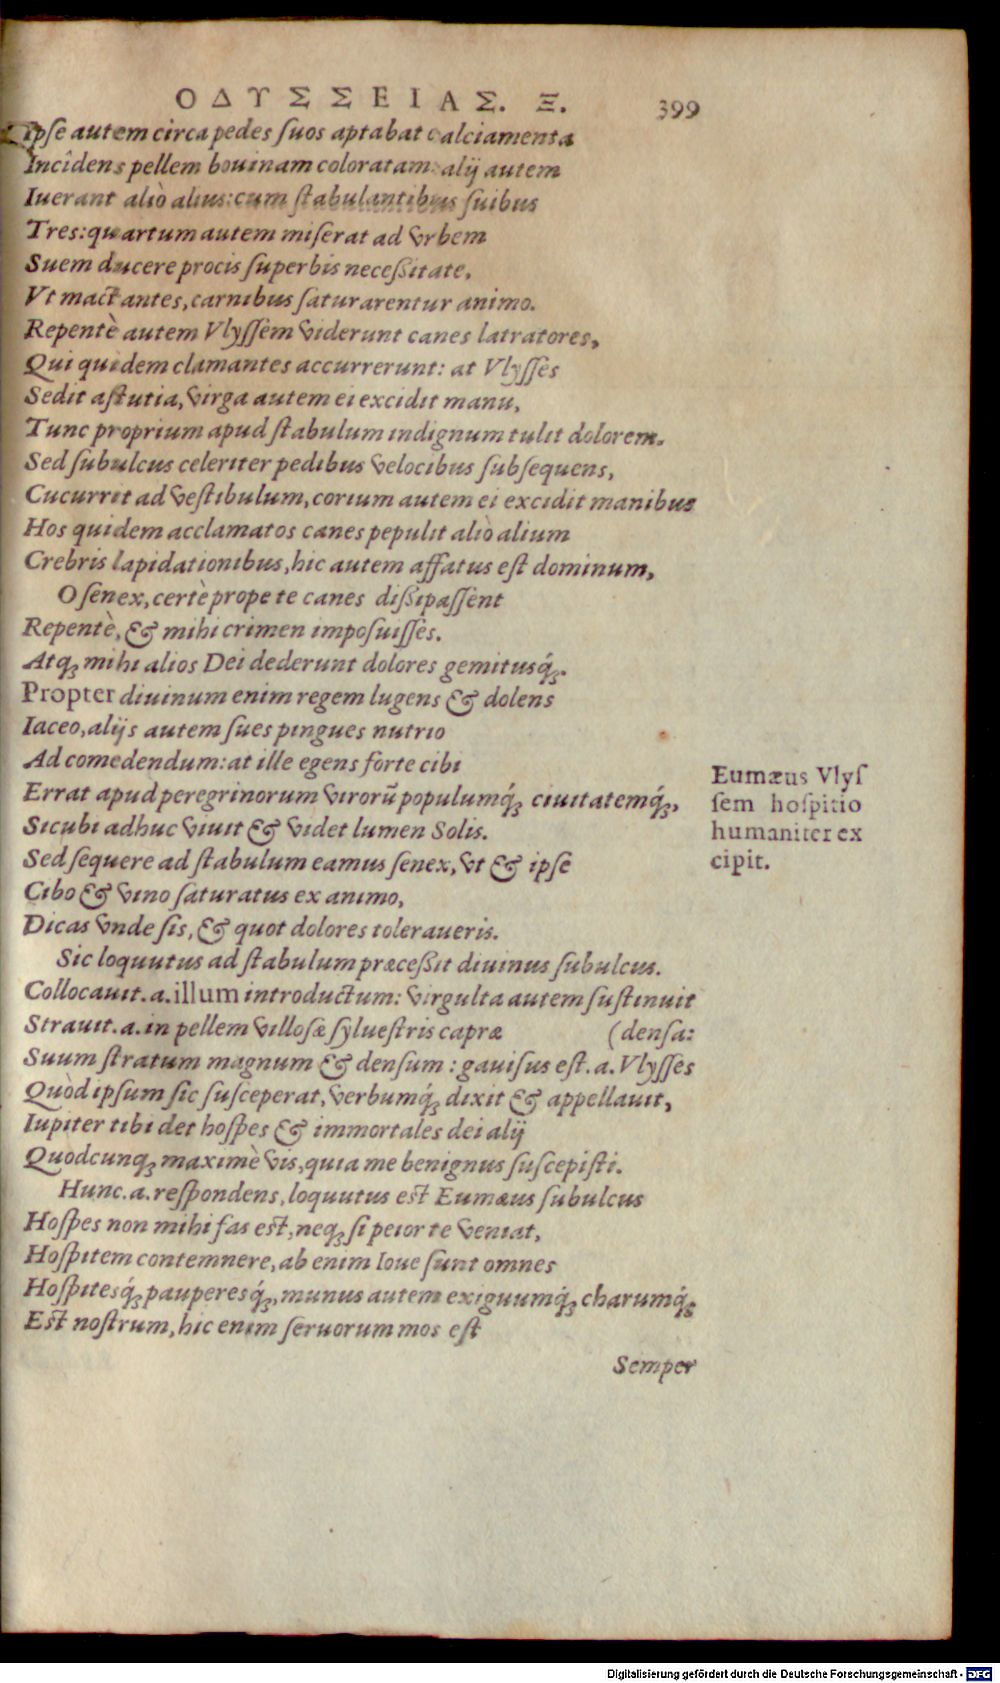 ΟΔΥΣΣΕΙΑΣ. Ξ. 399
Ipſe autem circa pedes ſuos aptabat calciamenta
Incîdens pellem bouinam coloratam: alij autem
Iuerant aliò alius: cum ſtabulantibus ſuibus
Tres: quartum autem miſerat ad vrbem
Suem ducere procis ſuperbis neceßitate,
Vt mactantes, carnibus ſaturarentur animo.
Repentè autem Vlyſſem viderunt canes latratores,
Qui quidem clamantes accurrerunt: at Vlyſſes
Sedit aſtutia, virga autem ei excidit manu,
Tunc proprium apud ſtabulum indignum tulit dolorem.
Sed ſubulcus celeriter pedibus velocibus ſubſequens,
Cucurrit ad veſtibulum, corium autem ei excidit manibus
Hos quidem acclamatos canes pepulit aliò alium
Crebris lapidationibus, hic autem affatus eſt dominum,
O ſenex, certè prope te canes dißipaſſent
Repentè, & mihi crimen impoſuiſſes.
Atq; mihi alios Dei dederunt dolores gemitusq́;.
Propter diuinum enim regem lugens & dolens
Iaceo, alijs autem ſues pingues nutrio
Ad comedendum: at ille egens forte cibi
Errat apud peregrinorum virorũ populumq́; ciuitatemq́;,
Sicubi adhuc viuit & videt lumen Solis.
Sed ſequere ad ſtabulum eamus ſenex, vt & ipſe
Cibo & vino ſaturatus ex animo,
Dicas vnde ſis, & quot dolores toleraueris.
Sic loquutus ad ſtabulum præceßit diuinus ſubulcus.
Collocauit. a. illum introductum: virgulta autem ſuſtinuit
Strauit. a. in pellem villoſæ ſylueſtris capræ (denſa:
Suum ſtratum magnum & denſum: gauiſus eſt. a. Vlyſſes
Quòd ipſum ſic ſuſceperat, verbumq́; dixit & appellauit,
Iupiter tibi det hoſpes & immortales dei alij
Quodcunq; maximè vis, quia me benignus ſuſcepiſti.
Hunc. a. reſpondens, loquutus eſt Eumæus ſubulcus
Hoſpes non mihi fas eſt, neq; ſi peior te veniat,
Hoſpitem contemnere, ab enim Ioue ſunt omnes
Hoſpitesq́; pauperesq́;, munus autem exiguumq́; charumq́;
Eſt noſtrum, hic enim ſeruorum mos eſt
Semper
Eumæus Vlyſ
ſem hoſpitio
humaniter ex
cipit.
Digitalisierung gefördert durch die Deutsche Forschungsgemeinschaft - DFG